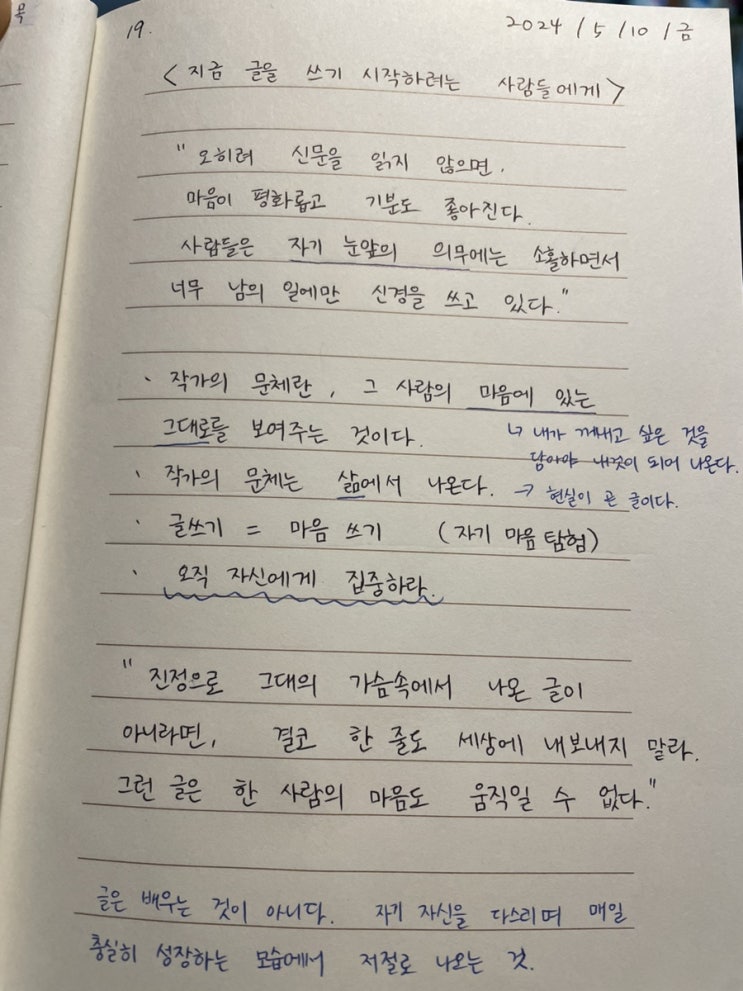 목
19.
2024 / 5 / 10 / 금
< 지금 글을 쓰기 시작하려는 사람들에게 >
" 오히려 신문을 읽지 않으면,
마음이 평화롭고 기분도 좋아진다.
사람들은 자기 눈앞의 의무에는 소홀하면서
너무 남의 일에만 신경을 쓰고 있다."
· 작가의 문체란, 그 사람의 마음에 있는
그대로를 보여주는 것이다.
↳ 내가 꺼내고 싶은 것을
담아야 내것이 되어 나온다.
· 작가의 문체는 삶에서 나온다. → 현실이 곧 글이다.
· 글쓰기 = 마음 쓰기 (자기 마음 탐험)
· 오직 자신에게 집중하라.
" 진정으로 그대의 가슴속에서 나온 글이
아니라면, 결코 한 줄도 세상에 내보내지 말라.
그런 글은 한 사람의 마음도 움직일 수 없다."
글은 배우는 것이 아니다. 자기 자신을 다스리며 매일
충실히 성장하는 모습에서 저절로 나오는 것.